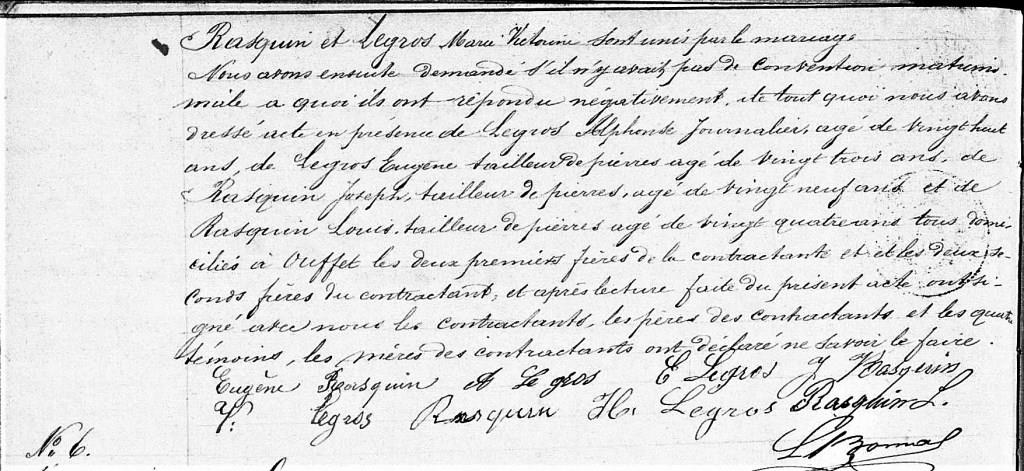 Rasquin et Legros Marie Victorine sont unis par le mariage
Nous avons ensuite demandé s'il n'y avait pas de convention matrimo-
niale a quoi ils ont répondu négativement, de tout quoi nous avons
dressé acte en présence de Legros Alphonse Journalier, agé de vingt huit
ans, de Legros Eugène tailleur de pierres agé de vingt trois ans, de
Rasquin Joseph, tailleur de pierres, agé de vingt neuf ans et de
Rasquin Louis, tailleur de pierres agé de vingt quatre ans tous domi-
ciliés à Ouffet les deux premiers frères de la contractante et et les deux se-
conds frères du contractant, et après lecture faite du present acte ont si-
gné avec nous les contractants, les pères des contractants et les quatre
témoins, les mères des contractants ont déclaré ne savoir le faire.
Eugène Rasquin A Legros E Legros J Rasquin
V. Legros Rasquin H. Legros Rasquin L.
No 6.